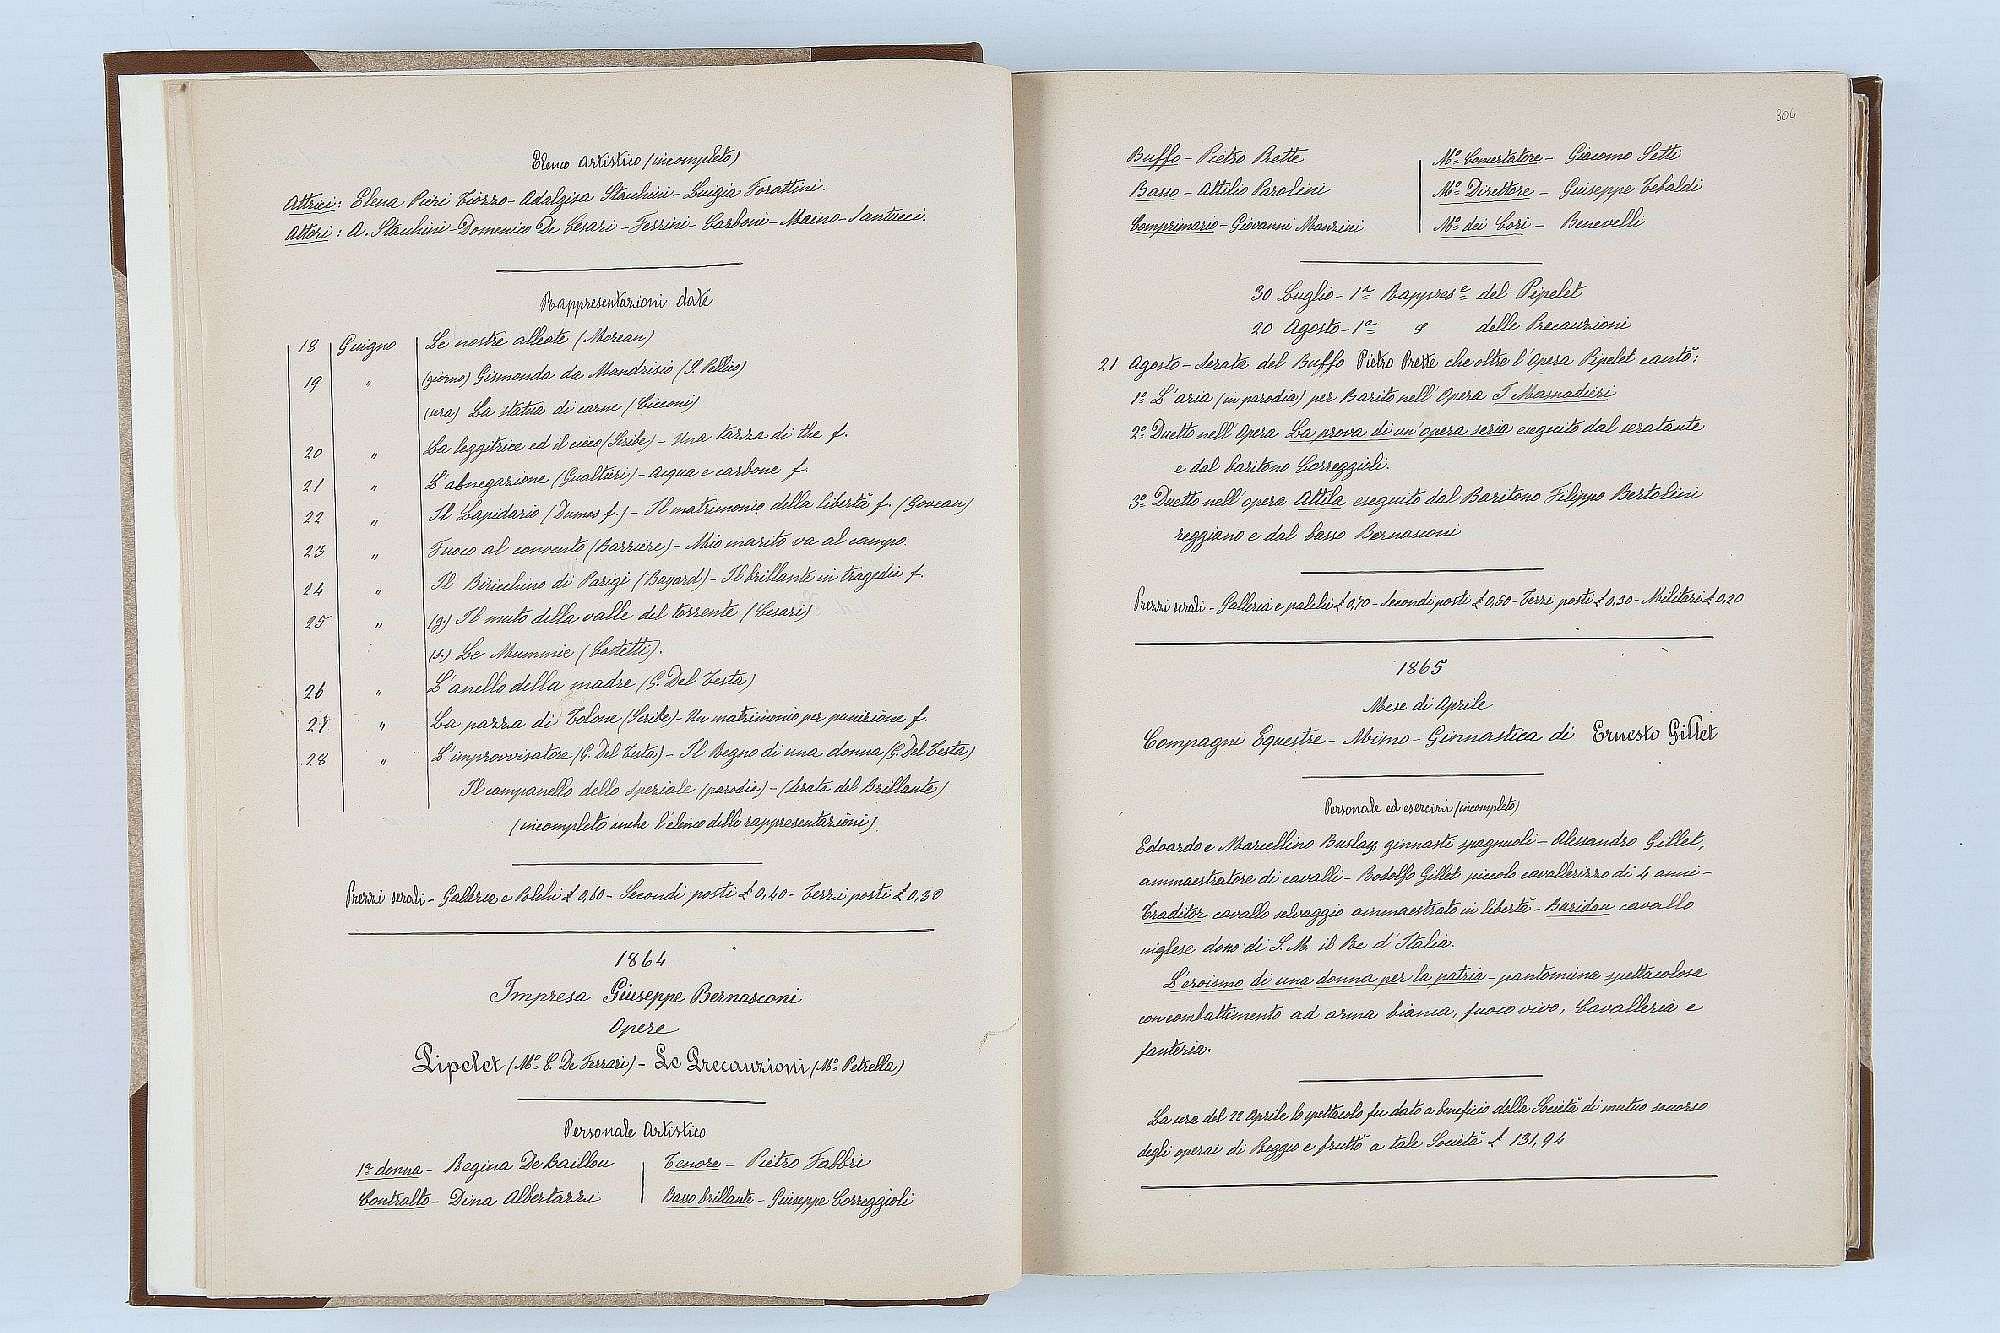 Elenco Artistico (incompleto)
Attrici: Elena Pieri Tiozzo - Adalgisa Stacchini - Luigia Forattini.
Attori: A. Stacchini - Domenico De Cesari - Ferrini - Carboni - Maino - Santucci.
Rappresentazioni date
18 Giugno Le nostre alleate (Moreau)
19 " (giorno) Gismonda da Mendrisio (S. Pellico)
(sera) La statua di carne (Cicconi)
20 " La leggitrice ed il cieco (Scribe) - Una tazza di the f.
21 " L'abnegazione (Gualtieri) - Acqua e carbone f.
22 " Il Lapidario (Dumas f.) - Il matrimonio della libertà f. (Govean)
23 " Fuoco al convento (Barriere) - Mio marito va al campo.
24 " Il Biricchino di Parigi (Bayard) - Il brillante in tragedia f.
25 " (g.) Il muto della valle del torrente (Cesari)
(s.) Le Mummie (Costetti).
26 " L'anello della madre (G. Del Testa)
27 " La pazza di Tolone (Scribe) - Un matrimonio per punizione f.
28 " L'improvvisatore (G. Del Testa) - Il Regno di una donna (G. Del Testa)
Il campanello dello speziale (parodia) - (Serata del Brillante)
(incompleto anche l'elenco delle rappresentazioni).
Prezzi serali - Galleria e Palchi £ 0,60 - Secondi posti £ 0,40 - Terzi posti £ 0,30
1864
Impresa Giuseppe Bernasconi
Opere
Pipelet (Mo. S. De Ferrari) - Le Precauzioni (Mo. Petrella)
Personale Artistico
1a donna - Regina De Baillou
Contralto - Dina Albertazzi
Tenore - Pietro Fabbri
Basso brillante - Giuseppe Correggioli
306
Buffo - Pietro Prette
Basso - Attilio Parolini
Comprimario - Giovanni Manzini
Mo. Concertatore - Giacomo Setti
Mo. Direttore - Giuseppe Tebaldi
Mo. dei Cori - Benevelli
30 Luglio - 1a Rapprese. del Pipelet
20 Agosto - 1a " delle Precauzioni
21 Agosto - Serata del Buffo Pietro Prette che oltre l'Opera Pipelet cantò:
1o L'aria (in parodia) per Barito nell'Opera I Masnadieri
2o Duetto nell'Opera La prova di un'opera seria eseguito dal seratante
e dal baritono Correggioli.
3o Duetto nell'opera Attila eseguito dal Baritono Filippo Bertolini
reggiano e dal basso Bernasconi
Prezzi serali - Galleria e palchi £ 0,70 - Secondi posti £ 0,50 - Terzi posti £ 0,30 - Militari £ 0,20
1865
Mese di Aprile
Compagni Equestre - Mimo - Ginnastica di Ernesto Gillet
Personale ed esercizii (incompleto)
Edoardo e Marcellino Buslay, ginnasti spagnuoli - Alessandro Gillet,
ammaestratore di cavalli - Rodolfo Gillet piccolo cavallerizzo di 4 anni -
Traditor cavallo selvaggio ammaestrato in libertà - Buridan cavallo
inglese dono di S. M. il Re d'Italia.
L'eroismo di una donna per la patria - pantomima spettacolosa
con combattimento ad arma bianca, fuoco vivo, Cavalleria e
fanteria.
La sera del 22 Aprile lo spettacolo fu dato a beneficio della Società di mutuo soccorso
degli operai di Reggio e fruttò a tale Società £ 131,94